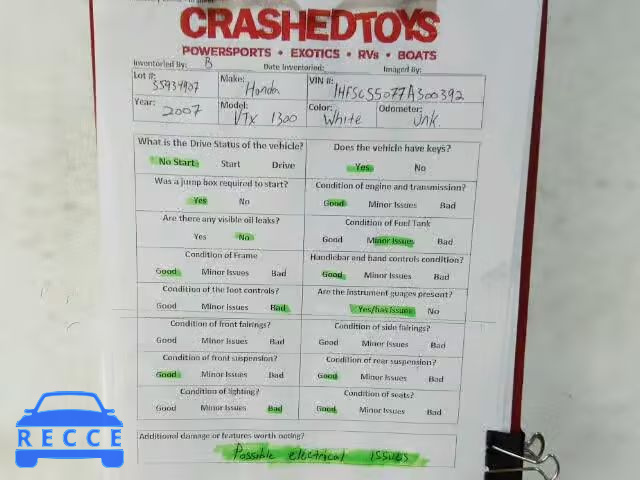 CRASHEDTOYS
POWERSPORTS • EXOTICS • RVs • BOATS
Inventoried By: B Date Inventoried: Imaged By:
Lot #: 55934907 Make: Honda VIN #: 1HFSC55077A300392
Year: 2007 Model: VTX 1300 Color: White Odometer: Unk.
What is the Drive Status of the vehicle? Does the vehicle have keys?
No Start Start Drive Yes No
Was a jump box required to start? Condition of engine and transmission?
Yes No Good Minor Issues Bad
Are there any visible oil leaks? Condition of Fuel Tank
Yes No Good Minor Issues Bad
Condition of Frame Handlebar and hand controls condition?
Good Minor Issues Bad Good Minor Issues Bad
Condition of the foot controls? Are the instrument guages present?
Good Minor Issues Bad Yes/has issues No
Condition of front fairings? Condition of side fairings?
Good Minor Issues Bad Good Minor Issues Bad
Condition of front suspension? Condition of rear suspension?
Good Minor Issues Bad Good Minor Issues Bad
Condition of lighting? Condition of seats?
Good Minor Issues Bad Good Minor Issues Bad
Additional damage or features worth noting?
Possible electrical issues
RECCE